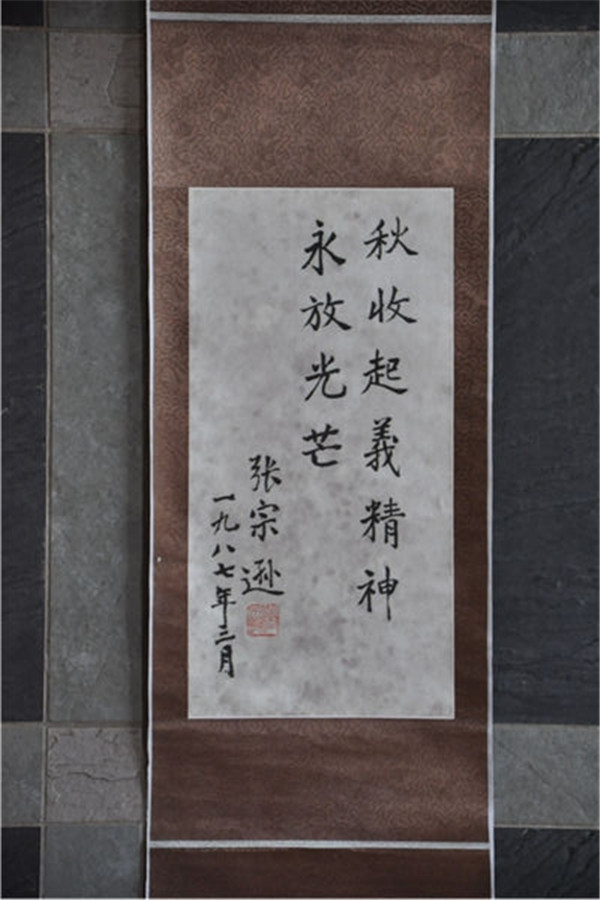 秋收起義精神
永放光芒
张宗逊
一九八七年三月